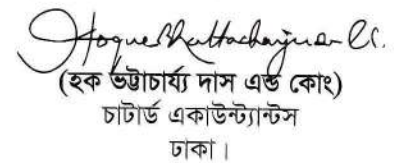 Hoque Bhattacharjee Das & Co.
(হক ভট্টাচার্য্য দাস এন্ড কোং)
চাটার্ড একাউন্ট্যান্টস
ঢাকা।